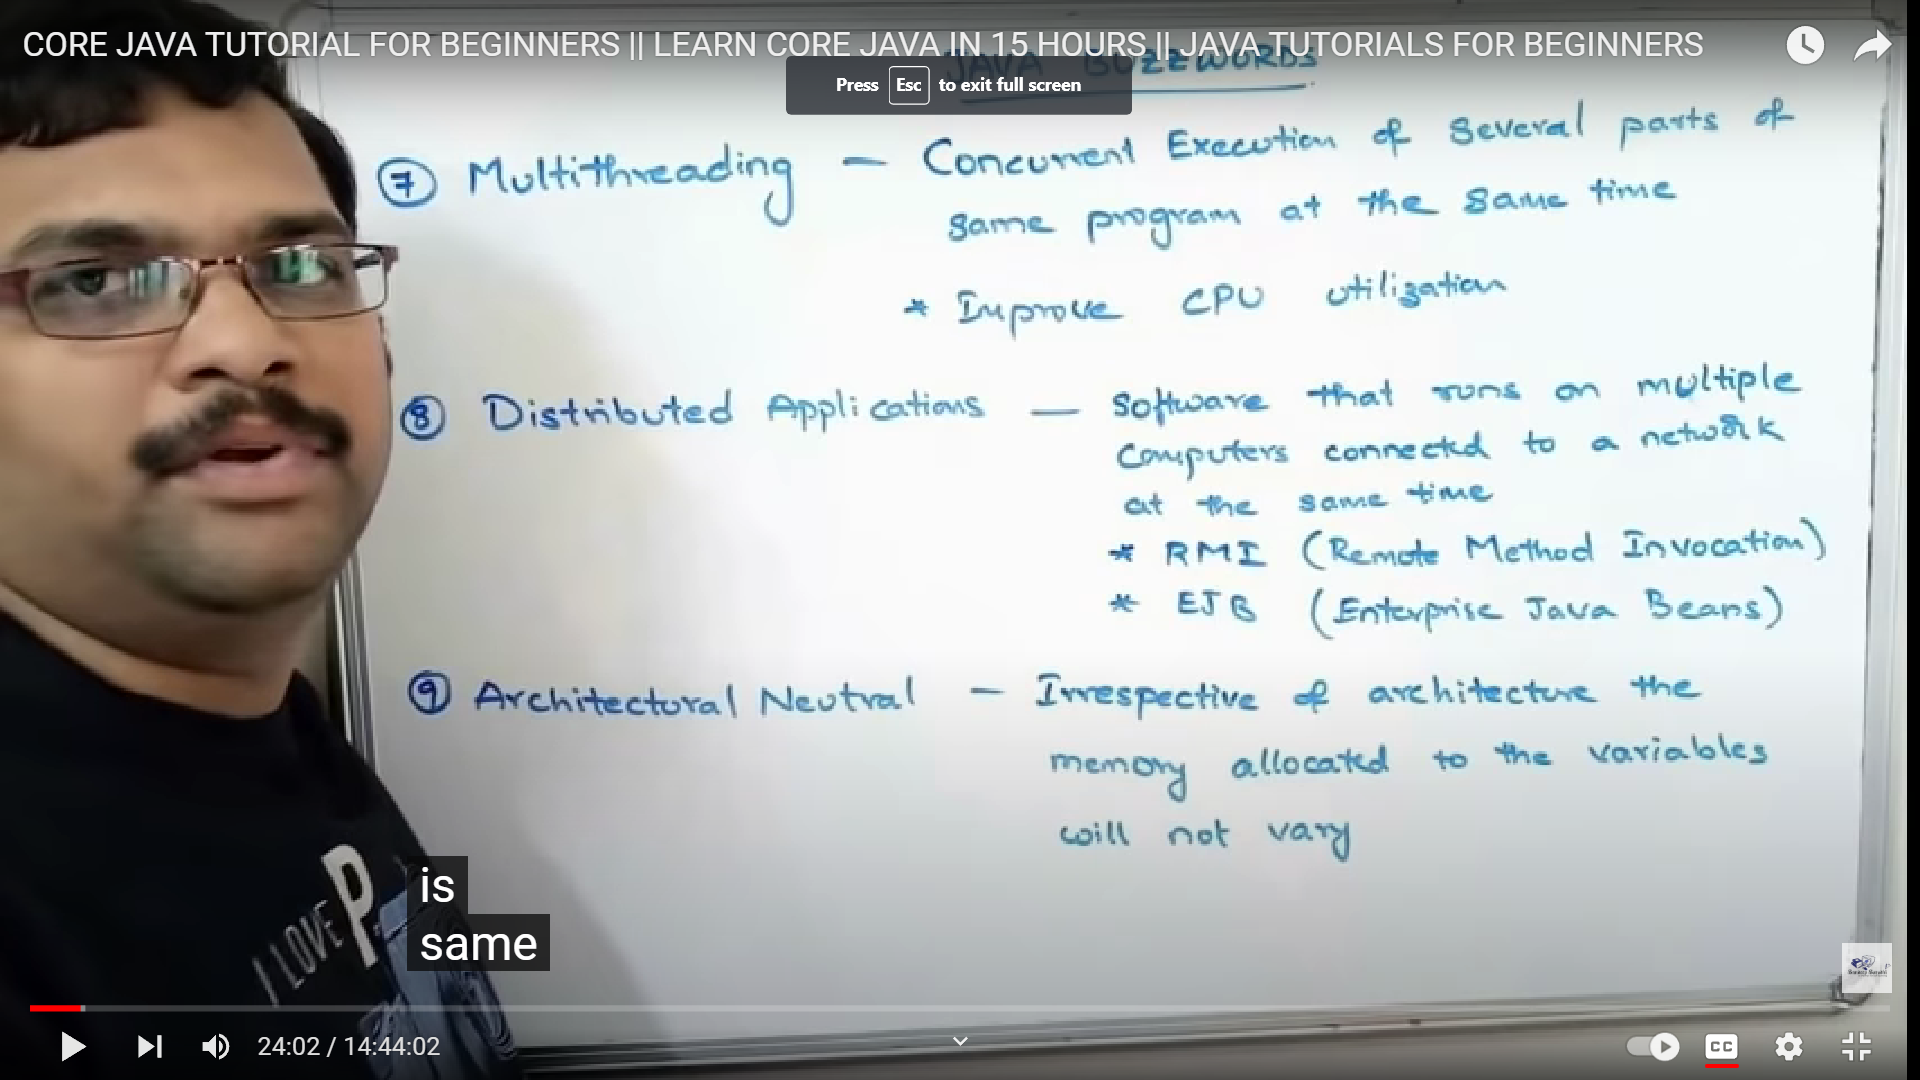 CORE JAVA TUTORIAL FOR BEGINNERS || LEARN CORE JAVA IN 15 HOURS || JAVA TUTORIALS FOR BEGINNERS
Press Esc to exit full screen
JAVA BUZZWORDS
7 Multithreading — Concurrent Execution of several parts of
same program at the same time
* Improve CPU utilization
8 Distributed Applications — Software that runs on multiple
computers connected to a network
at the same time
* RMI (Remote Method Invocation)
* EJB (Enterprise Java Beans)
9 Architectoral Neutral — Irrespective of architecture the
memory allocated to the variables
will not vary
I LOVE P
is
same
24:02 / 14:44:02
CC